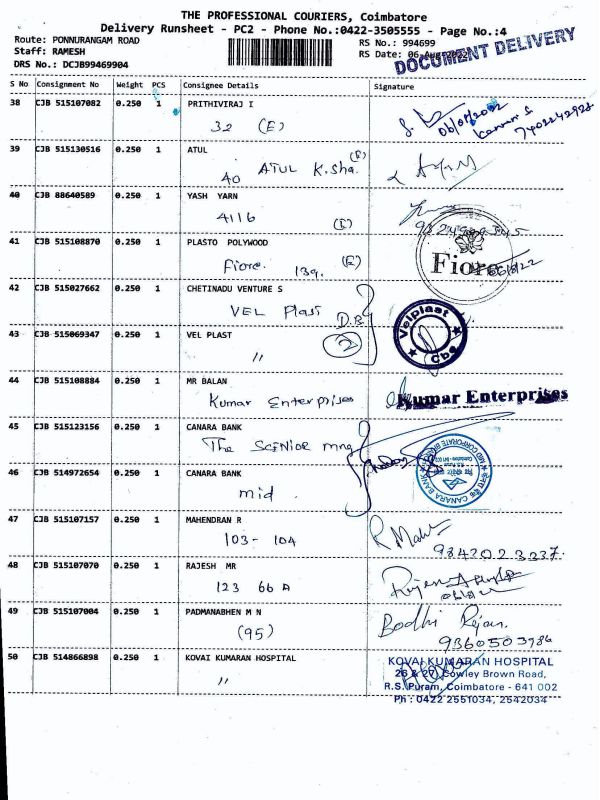 THE PROFESSIONAL COURIERS, Coimbatore
Delivery Runsheet - PC2 - Phone No.:0422-3505555 - Page No.:4
Route: PONNURANGAM ROAD
Staff: RAMESH
DRS No.: DCJB99469904
RS No.: 994699
RS Date: 06-Aug-2022
DOCUMENT DELIVERY
S No Consignment No Weight PCS Consignee Details Signature
38 CJB 515107082 0.250 1 PRITHIVIRAJ I
32 (E)
06/08/2022
7402242928
39 CJB 515130516 0.250 1 ATUL
40 ATUL K.Sha. (E)
40 CJB 88640589 0.250 1 YASH YARN
4116 (E)
41 CJB 515108870 0.250 1 PLASTO POLYWOOD
Fiore. 139. (E)
Fiore
42 CJB 515027662 0.250 1 CHETINADU VENTURE S
VEL Plast D.B
43 CJB 515069347 0.250 1 VEL PLAST
" 2
Velplast
Cbe
44 CJB 515108884 0.250 1 MR BALAN
Kumar Enterprises
Kumar Enterprises
45 CJB 515123156 0.250 1 CANARA BANK
The SCENIOR mng
46 CJB 514972654 0.250 1 CANARA BANK
mid.
CANARA BANK
MID CORPORATE BRANCH
47 CJB 515107157 0.250 1 MAHENDRAN R
103 - 104
98420 23337.
48 CJB 515107070 0.250 1 RAJESH MR
123 66 A
49 CJB 515107004 0.250 1 PADMANABHEN M N
(95)
Bodhi Rajan.
9360503986
50 CJB 514866898 0.250 1 KOVAI KUMARAN HOSPITAL
"
KOVAI KUMARAN HOSPITAL
26 & 27, Cowley Brown Road,
R.S. Puram, Coimbatore - 641 002
Ph : 0422 2551034, 2542034